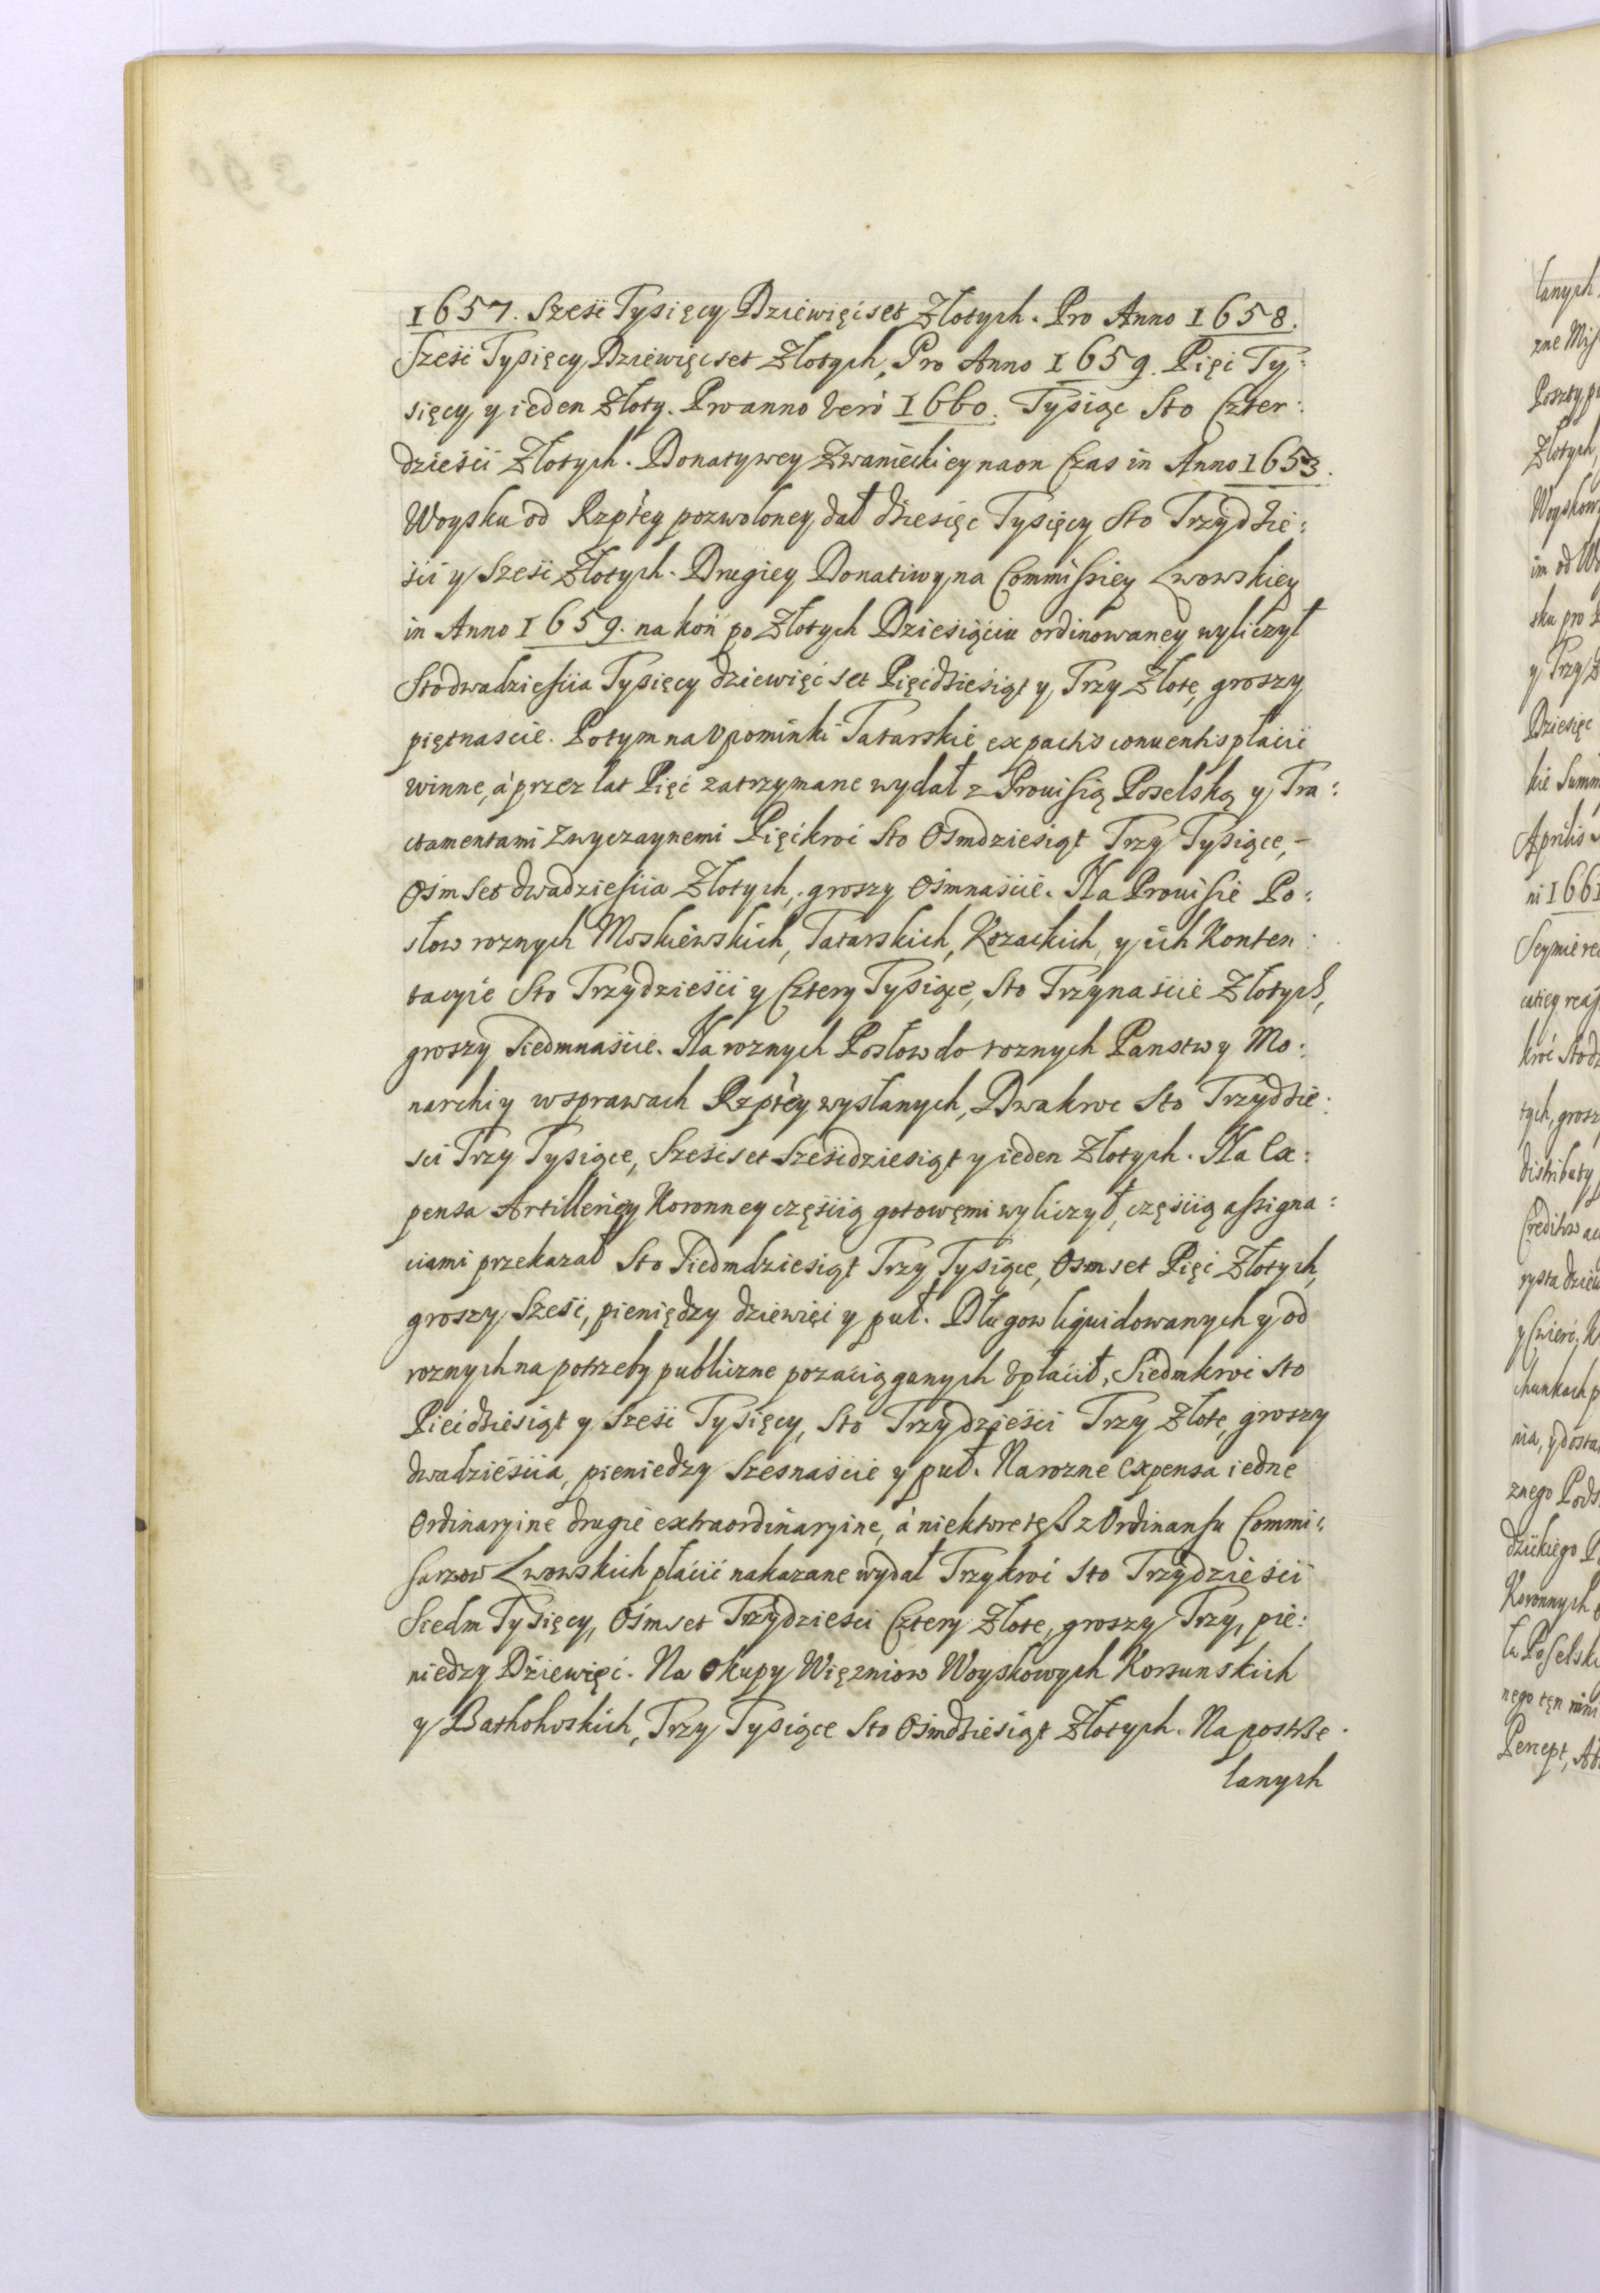 1657. Sześć Tysięcy Dziewięćset Złotych. Pro Anno 1658.
Sześć Tysięcy Dziewięcset Złotych, Pro Anno 1659. Pięć Ty:
sięcy y ieden Złoty. Pro anno verò 1660. Tysiąc Sto Czter:
dzieści Złotych. Donatywey Zwanieckiey na on Czas in Anno 1653.
Woysku od Rzptey pozwoloney dał dziesięc Tysięcy Sto Trzydzie:
ści y Sześć Złotych. Drugiey Donatiwy na Commissiey Lwowskiey
in Anno 1659. na koń po Złotych Dziesiąciu ordinowaney wyliczył
Sto dwadzieścia Tysięcy dziewięć set Pięćdziesiąt y Trzy Złote, groszy
piętnascie. Potym na Vpominki Tatarskie ex pactis conventis płacić
winne, à przez lat Pięć zatrzymane wydał z Prouisią Poselską y Tra:
ctamentami zwyczaynemi Pięćkroć Sto Ośmdziesiąt Trzy Tysiące, –
Ośm set dwadzieścia Złotych, groszy Ośmnaście. Na Prouisie Po:
słow roznych Moskiewskich, Tatarskich, Kozackich, y ich Konten:
tacyie Sto Trzydzieści y Cztery Tysiące, Sto Trzynaście Złotych,
groszy Siedmnaście. Na roznych Posłow do roznych Panstw y Mo:
narchiy w sprawach Rzptey wysłanych, Dwakroc Sto Trzydzie:
sci Trzy Tysiące, Sześćset Sześćdziesiąt y ieden Złotych. Na Ex:
pensa Artilleriey Koronney częścią gotowęmi wyliczył, częścią assigna:
ciami przekazał Sto Siedmdziesiąt Trzy Tysiące, Osmset Pięć Złotych,
groszy Sześć, pieniędzy dziewięć y puł. Długow liquidowanych y od
roznych na potrzeby publiczne pozaciąganych Vpłacił, Siedmkroć Sto
Piećdziesiąt y Sześć Tysięcy, Sto Trzydzieści Trzy Złote, groszy
dwadzieścia, pieniedzy Szesnaście y puł. Na rozne Expensa iedne
Ordinaryine drugie extraordinaryine, à niektore też z Ordinansu Commi:
sarzow Lwowskich płacić nakazane wydał Trzykroć Sto Trzydzieści
Siedm Tysięcy, Ośmset Trzydzieści Cztery Złote, groszy Trzy, pie:
niedzy Dziewięć. Na Okupy Więzniow Woyskowych Korsunskich
y Bathohskich, Trzy Tysiące Sto Ośmdziesiąt Złotych. Na postrze:
lanych